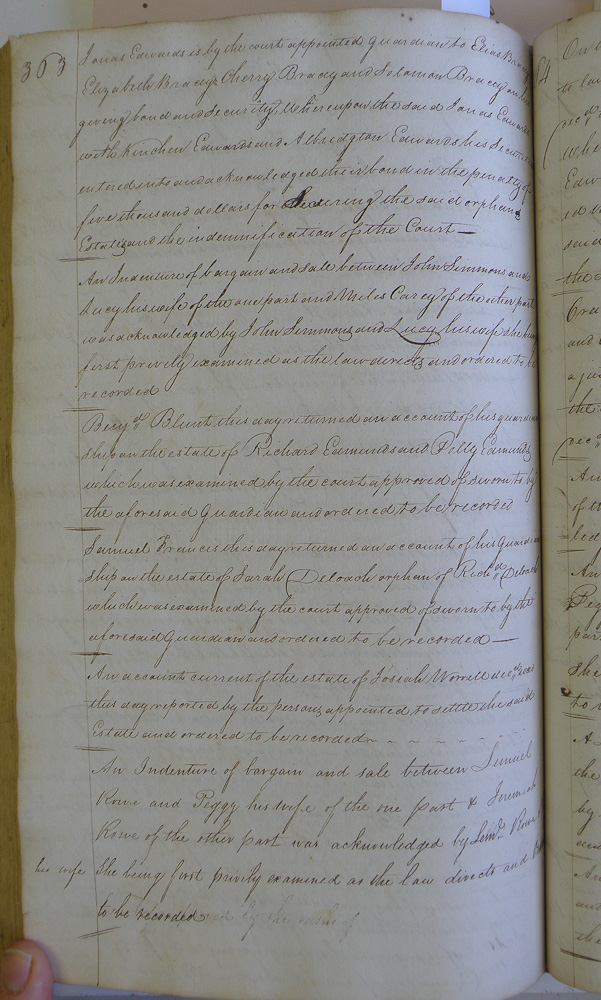 303
Jonas Edwards is by the court appointed guardian to Elias Bracy
Elizabeth Bracy Cherry Bracy and Solomon Bracey on his
giving bond and security, Whereupon the said Jonas Edwards
with Kinchen Edwards and Albridgton Edwards his Securities
entered into and acknowledged their bond in the penalty of
five thousand dollars for securing the said orphans
Estates and the indemnification of the Court —
An Indenture of bargain and sale between John Simmons and
Lucy his wife of the one part and Miles Carey of the other part
was acknowledged by John Simmons and Lucy his wife she being
first privily examined as the law directs and ordered to be
recorded
Benja. Blunt this day returned an account of his guardian
ship on the estate of Richard Edmunds and Polly Edmunds
which was examined by the court approved of sworn to by
the aforesaid guardian and ordered to be recorded
Samuel Francis this day returned an account of his Guardian
ship on the estate of Sarah Deloach orphan of Richd. Deloach
which was examined by the court approved of sworn to by the
aforesaid Guardian and ordered to be recorded —
An account current of the estate of Josiah Worrell decd. was
this day reported by the persons appointed to settle the said
Estate and ordered to be recorded - - - - - -
An Indenture of bargain and sale between Lemuel
Rowe and Peggy his wife of the one part & Jeremiah
Rowe of the other part was acknowledged by Leml. Rowe
his wife She being first privily examined as the law directs and
to be recorded by the